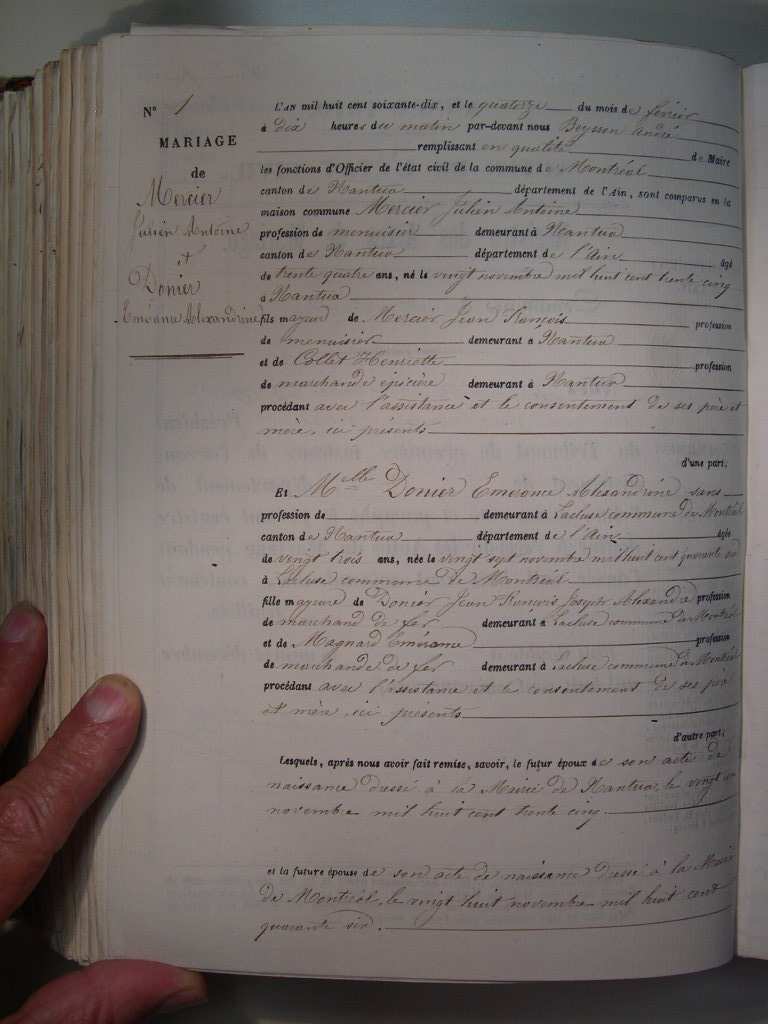 N° 1
MARIAGE
de
Mercier
Julien Antoine
et
Donier
Emérance Alexandrine
L'AN mil huit cent soixante-dix, et le quatorze du mois de fevrier
à dix heures du matin par-devant nous Beysson André
remplissant en qualité de Maire
les fonctions d'Officier de l'état civil de la commune de Montréal
canton de Nantua département de l'Ain, sont comparus en la
maison commune Mercier Julien Antoine
profession de menuisier demeurant à Nantua
canton de Nantua département de l'Ain âgé
de trente quatre ans, né le vingt novembre mil huit cent trente cinq
à Nantua
fils majeur de Mercier Jean François profession
de menuisier demeurant à Nantua
et de Collet Henriette profession
de marchande épicière demeurant à Nantua
procédant avec l'assistance et le consentement de ses père et
mère, ici présents
d'une part.
Et Melle Donier Emérance Alexandrine sans
profession de demeurant à Lacluse commune de Montréal
canton de Nantua département de l'Ain âgée
de vingt trois ans, née le vingt sept novembre mil huit cent quarante six
à Lacluse commune de Montréal
fille majeure de Donier Jean François Joseph Alexandre profession
de marchand de fer demeurant à Lacluse commune de Montréal
et de Magnard Emérance profession
de marchande de fer demeurant à Lacluse commune de Montréal
procédant avec l'assistance et le consentement de ses père
et mère, ici présents
d'autre part;
Lesquels, après nous avoir fait remise, savoir, le futur époux de son acte de
naissance dressé à la Mairie de Nantua, le vingt
novembre mil huit cent trente cinq
et la future épouse de son acte de naissance dressé à la Mairie
de Montréal, le vingt huit novembre mil huit cent
quarante six.